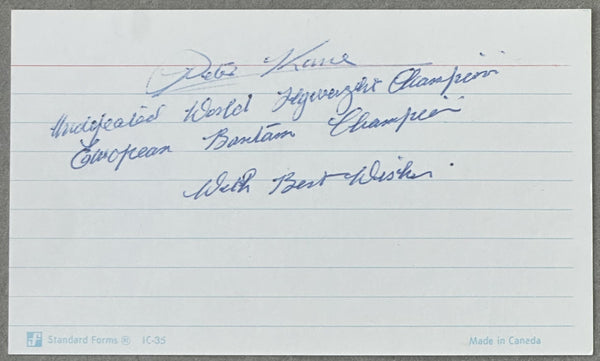 Peter Kane
Undefeated World Flyweight Champion
European Bantam Champion
With Best Wishes
Standard Forms ® IC-35
Made in Canada